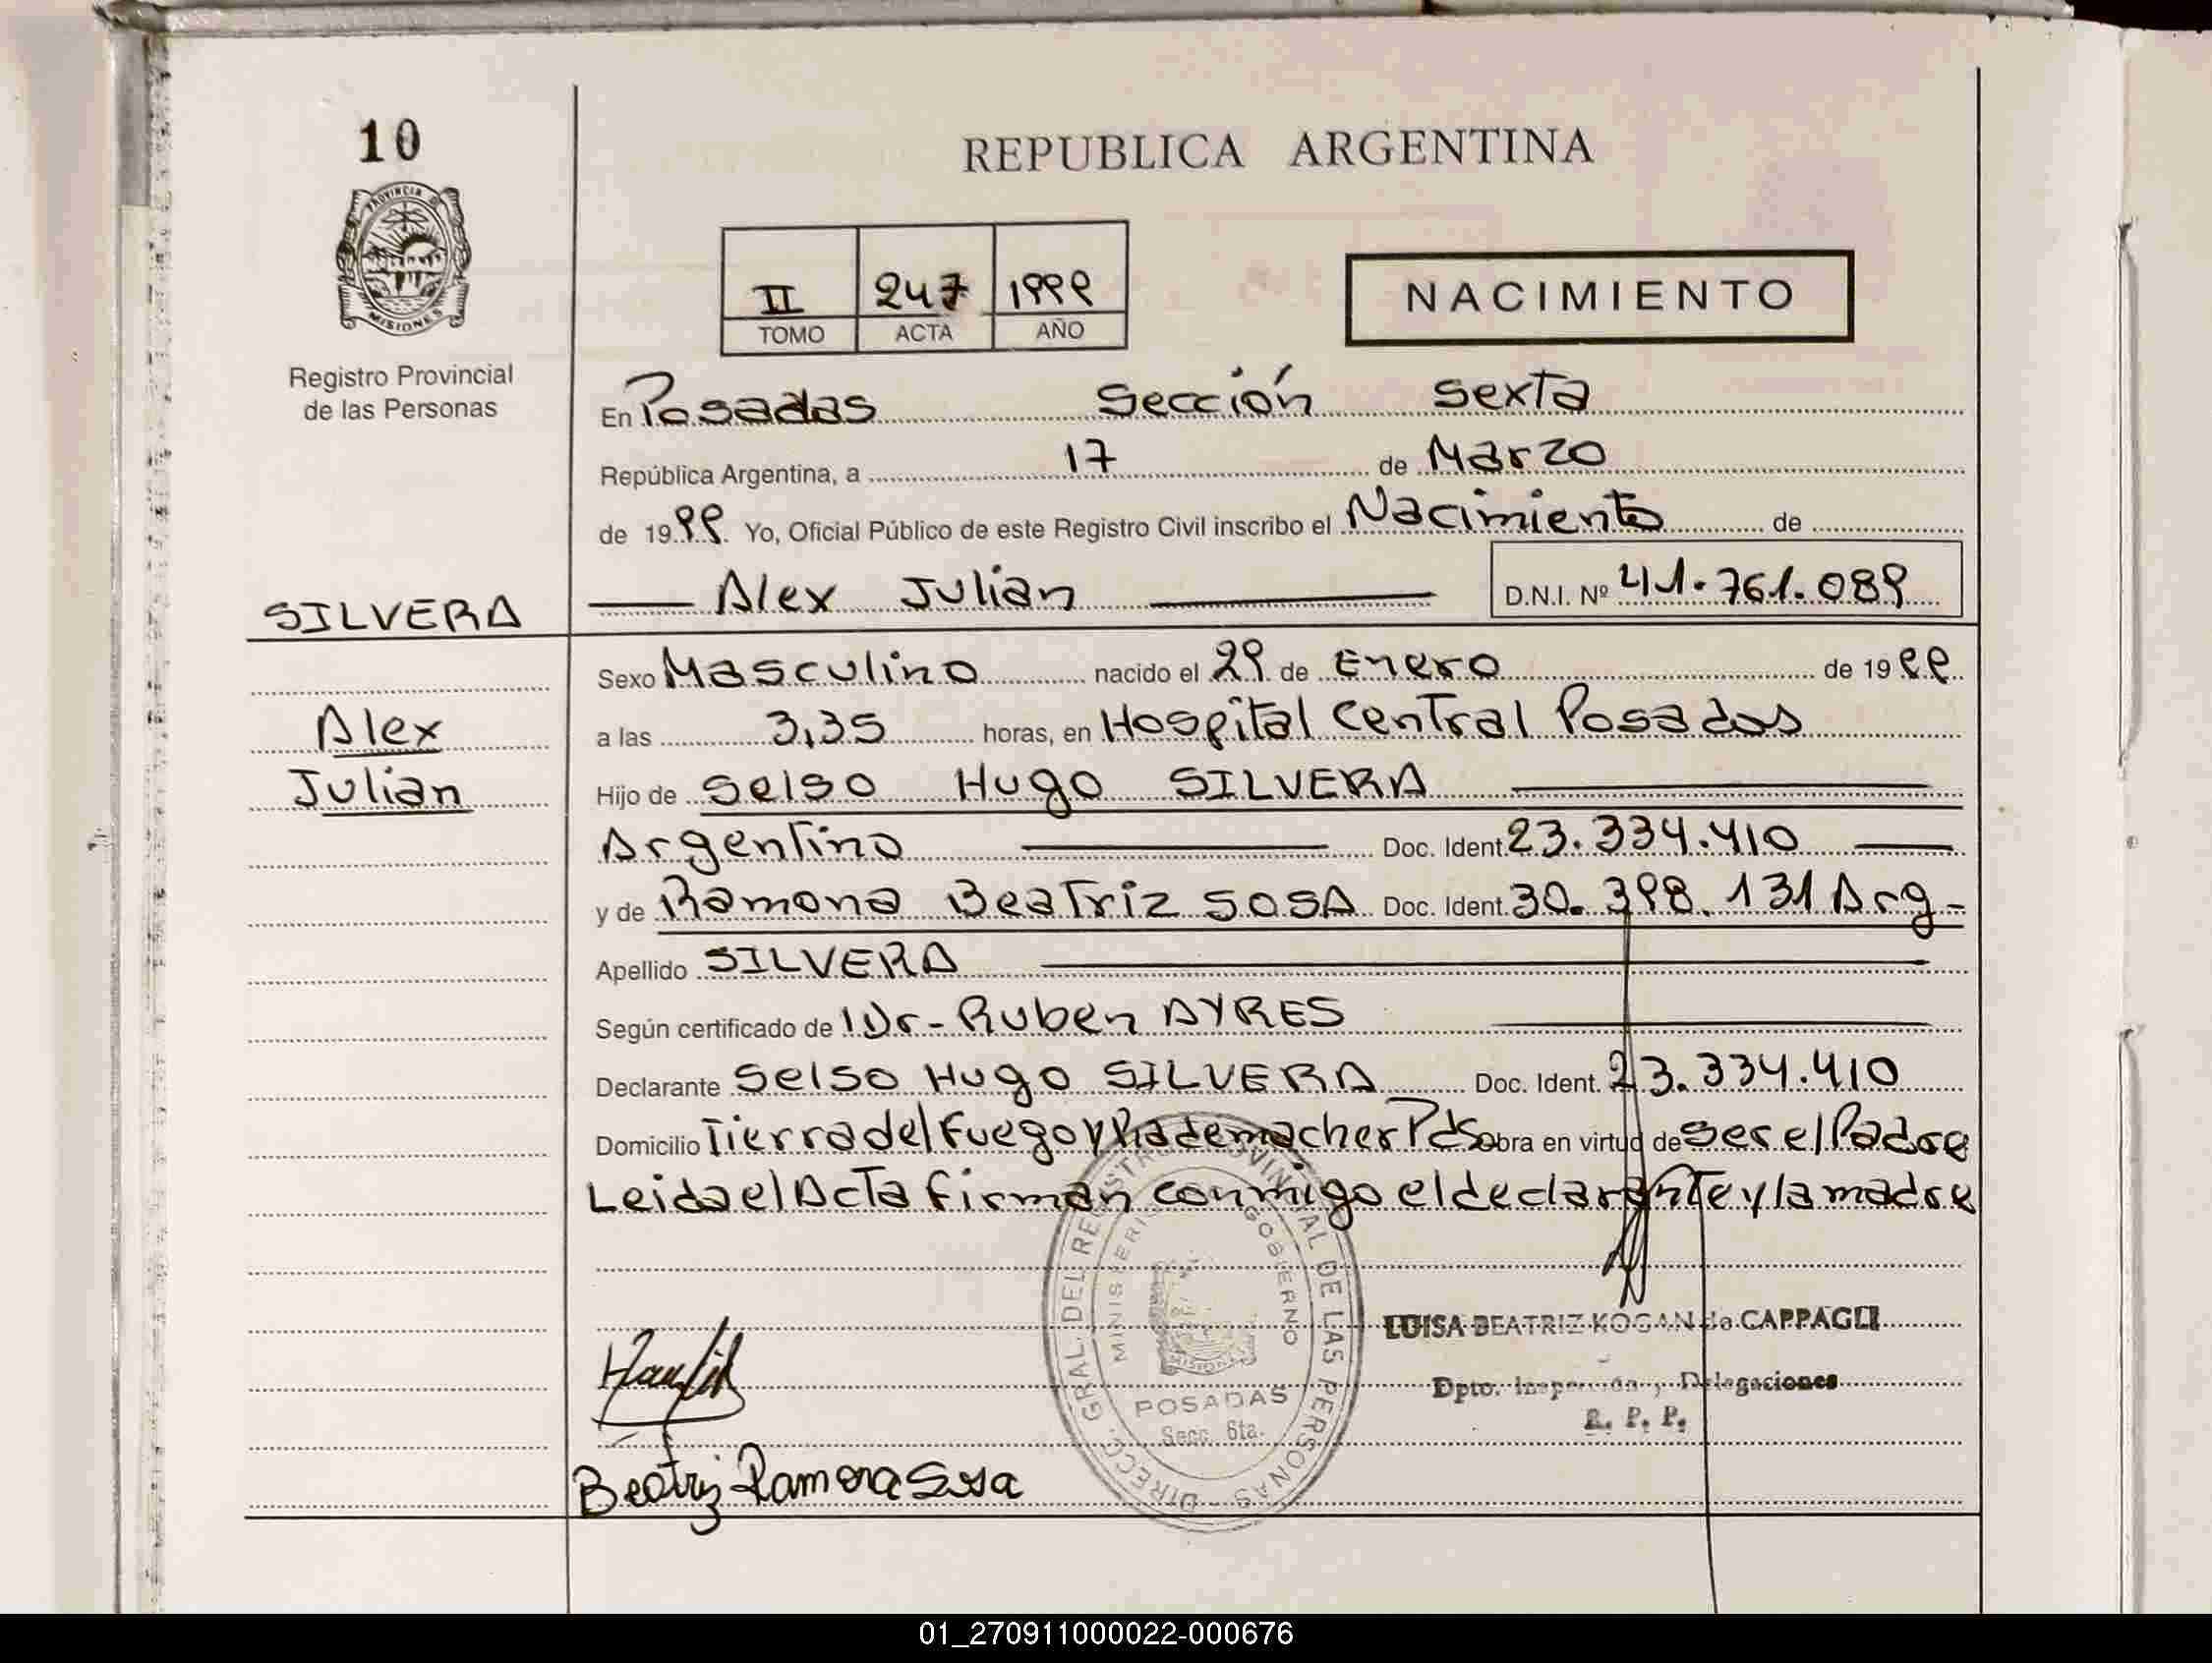 10
REPUBLICA ARGENTINA
PROVINCIA D
MISIONES
Registro Provincial
de las Personas
II 247 1999
TOMO ACTA AÑO
NACIMIENTO
En Posadas Sección Sexta
República Argentina, a 17 de Marzo
de 1999 Yo, Oficial Público de este Registro Civil inscribo el Nacimiento de
SILVERA
Alex Julian D.N.I. Nº 41.761.089
Sexo Masculino nacido el 29 de Enero de 1999
Alex
a las 3,35 horas, en Hospital Central Posadas
Julian
Hijo de Selso Hugo SILVERA
Argentino Doc. Ident. 23.334.410
y de Ramona Beatriz SOSA Doc. Ident. 30.398.131 Arg-
Apellido SILVERA
Según certificado de Dr- Ruben AYRES
Declarante Selso Hugo SILVERA Doc. Ident. 23.334.410
Domicilio Tierra del Fuego y Rademacher Pds obra en virtud de ser el Padre
Leida el Acta firman conmigo el declarante y la madre
DIRECC. GRAL. DEL REGISTRO PROVINCIAL DE LAS PERSONAS
MINISTERIO GOBIERNO
MISIONES
POSADAS
Secc. 6ta.
LUISA BEATRIZ KOGAN de CAPPAGLI
Dpto. Inspección y Delegaciones
R. P. P.
Beatriz Ramona Sosa
01_270911000022-000676